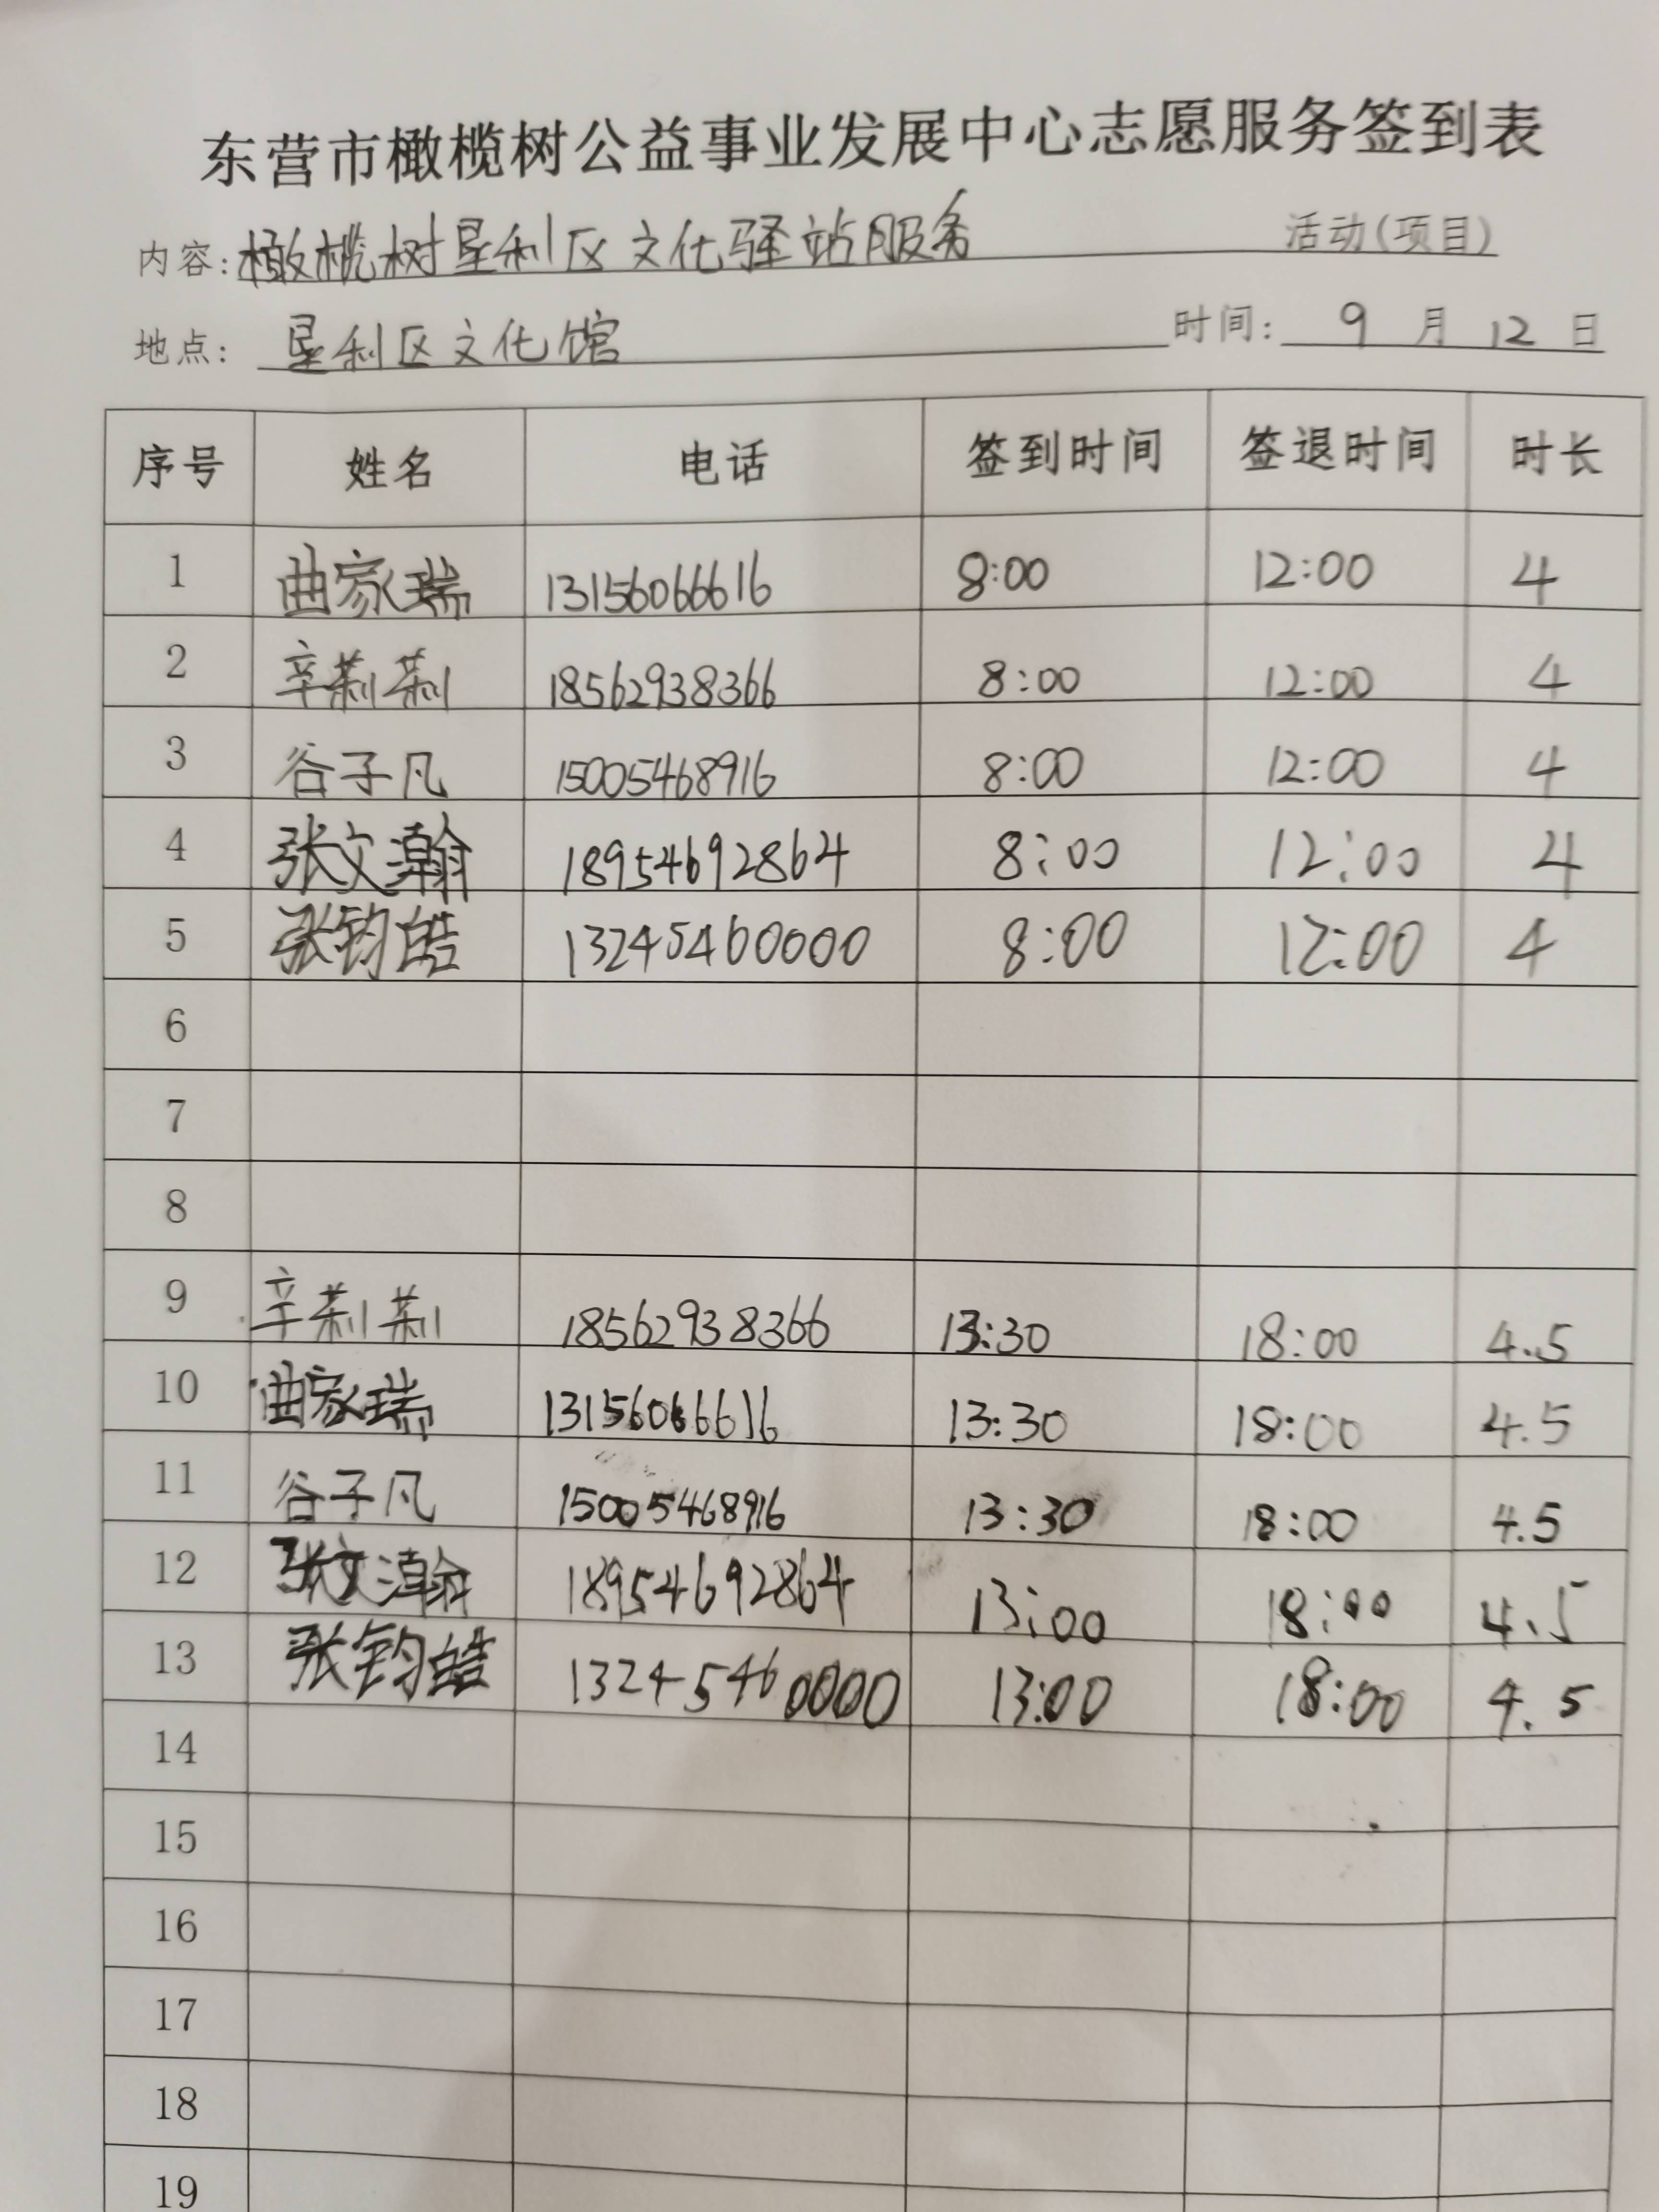 东营市橄榄树公益事业发展中心志愿服务签到表
内容:橄榄树垦利区文化驿站服务 活动(项目)
地点: 垦利区文化馆 时间: 9 月 12 日
序号 姓名 电话 签到时间 签退时间 时长
1 曲家瑞 13156066616 8:00 12:00 4
2 辛 18562938366 8:00 12:00 4
3 谷子凡 15005468916 8:00 12:00 4
4 张文瀚 18954692864 8:00 12:00 4
5 张钧皓 13245460000 8:00 12:00 4
6
7
8
9 辛 18562938366 13:30 18:00 4.5
10 曲家瑞 13156066616 13:30 18:00 4.5
11 谷子凡 15005468916 13:30 18:00 4.5
12 张文瀚 18954692864 13:00 18:00 4.5
13 张钧皓 13245460000 13:00 18:00 4.5
14
15
16
17
18
19